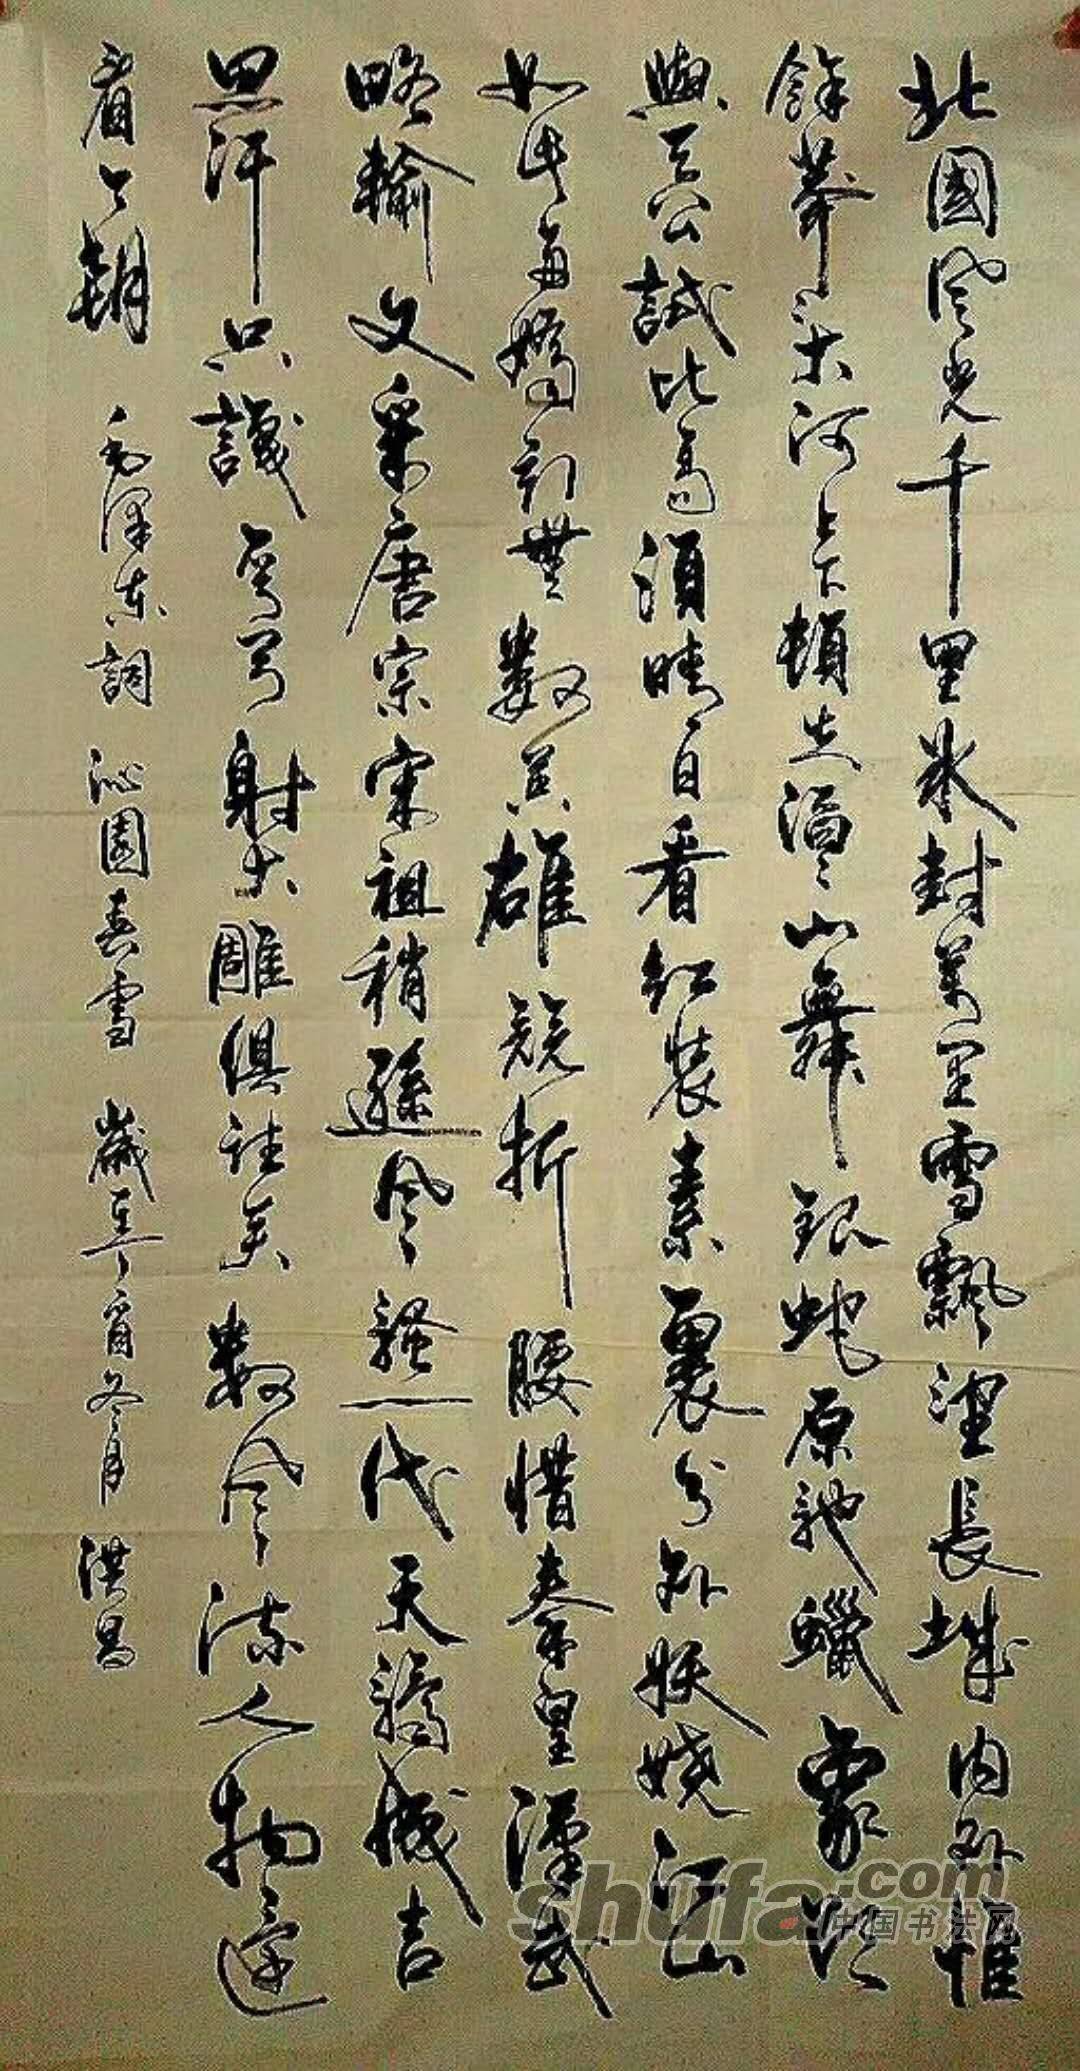 北國风光千里冰封萬里雪飄望長城内外惟
餘莽〻大河上下頓失滔〻山舞銀蛇原馳蠟象欲
與天公試比高須晴日看红装素裹分外妖嬈江山
如此多嬌引無數英雄競折腰惜秦皇漢武
略輸文采唐宗宋祖稍遜风騷一代天驕成吉
思汗只識彎弓射大雕俱往矣數风流人物還
看今朝 毛澤東詞 沁園春雪 歲在丁酉冬月 洪昌
shufa.com
中国书法网